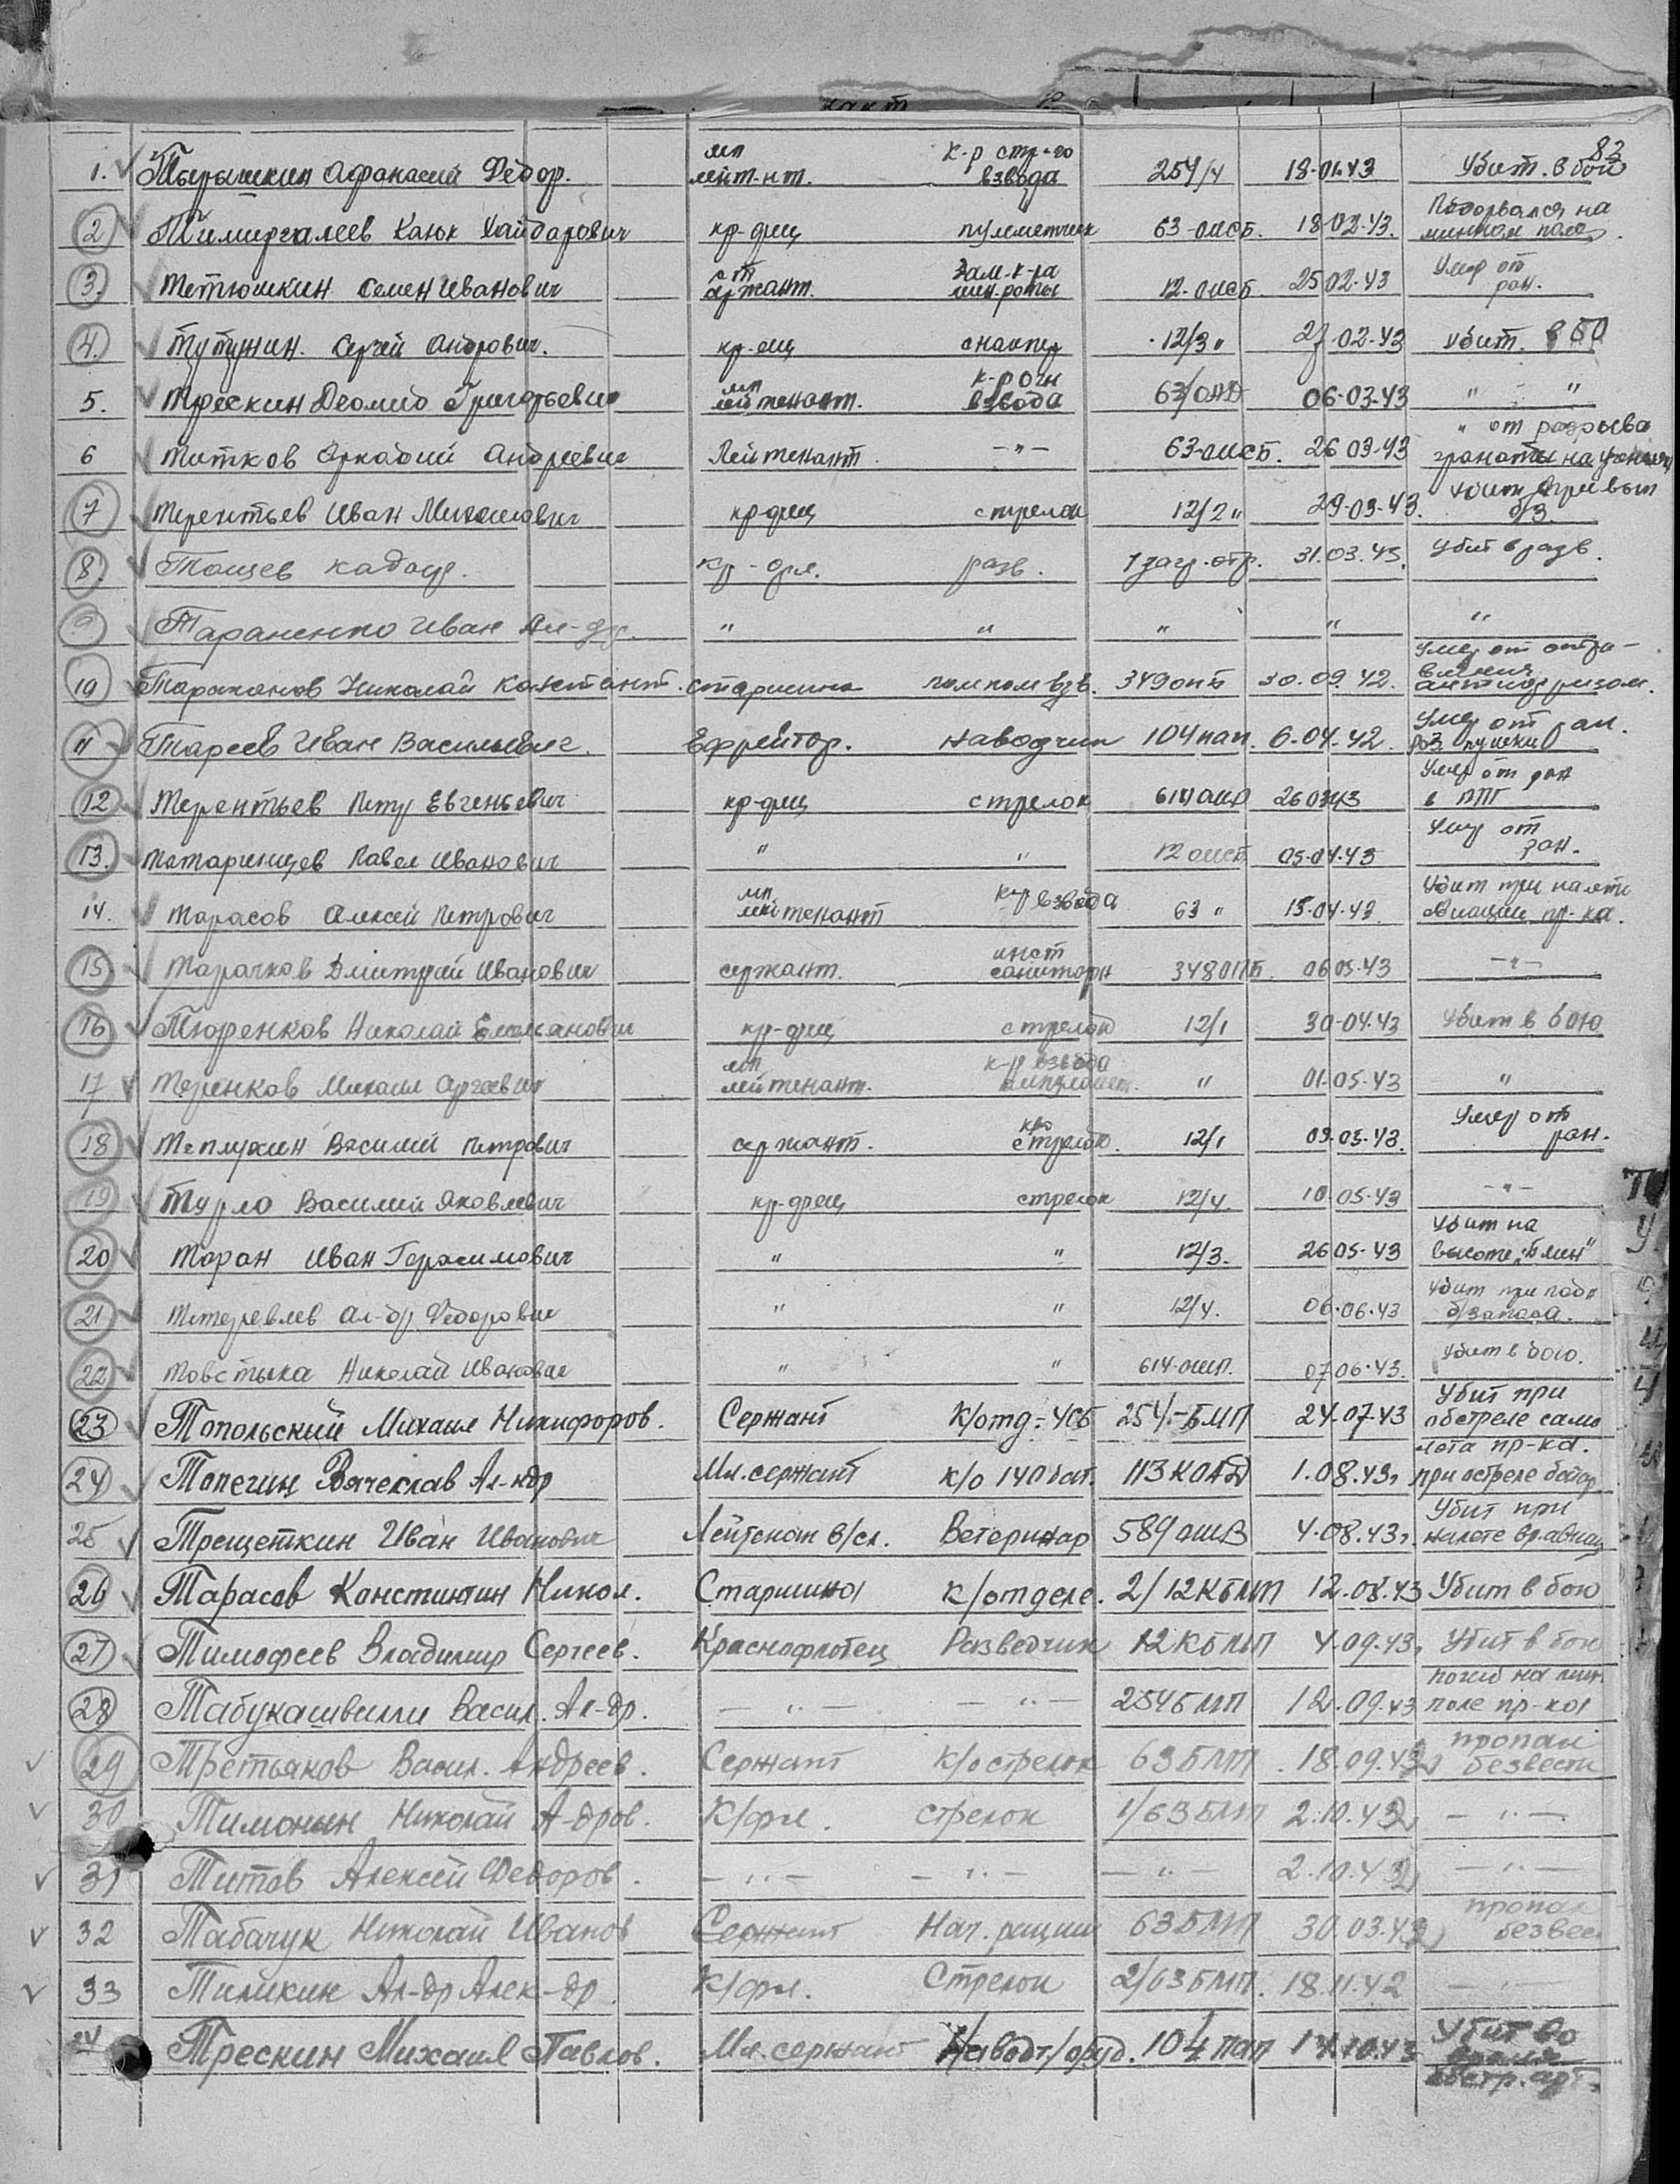 82
1. Тырышкин Афанасий Федор. мл лейт-нт. к-р стр-го взвода 254/4 18-01-43 Убит. в бою
2 Тимиргалеев Каюк Хайдарович кр-фец пулеметчик 63-оисб. 18-02-43. Подорвался на минном поле
3. Тетюшкин Семен Иванович ст сержант. Зам.к-ра мин.роты 12-оисб. 25 02-43 Умер от ран.
4. Тутунин. Сергей Андрович. кр-фец снайпер 12/3 " 27-02-43 убит. в бо
5. Трескин Деомид Григорьевич мл лейтенант. к-р огн взвода 63/ОАД 06-03-43 " "
6 Титков Аркадий Андреевич Лейтенант. -"- 63-оисб. 26 03-43 " от разрыва гранаты на учении
7 Терентьев Иван Михайлович кр-фец стрелок 12/2 " 29-03-43. убит при вып б/з.
8. Тощев кр-фл. разв. 1 загр.отр. 31.03.43. Убит в разв.
9 Тараненко Иван Ал-др. " " " " "
10 Тараканов Николай Констант.. старшина помком взв. 349 опб 30.09.42. Умер от отра- вления антифризом.
11 Тареев Иван Васильевич. Ефрейтор. наводчик 104 пап. 6-04-42. Умер от ран. роз пушки
12 Терентьев Петр Евгеньевич кр-фец стрелок 614 ошр 26 03 43 Умер от ран в ППГ
13. Татаринцев Павел Иванович " " 12 оисб 05-04-43 Умер от ран.
14. Тарасов Алексей Петрович мл лейтенант к-р взвода 63 " 15-04-43 Убит при налете авиации пр-ка.
15 Тарачков Дмитрий Иванович сержант. инст санитарн 348 ОПБ. 06 05-43 -"-
16 Тюренков Николай Емельянович кр-фец стрелок 12/1 30-04-43 Убит в бою
17 Теренков Михаил Сргеевич мл лейтенант. к-р взвода " 01-05-43 "
18 Теплухин Василий Петрович сержант. к/о стрелко. 12/1 09-05-43. Умер от ран.
19 Турло Василий Яковлевич кр-фец стрелок 12/4. 10-05-43 -"-
20 Таран Иван Герасимович " " 12/3. 26 05-43 Убит на высоте „Блин"
21 Тетеревлев Ал-др Федорович " " 12/4. 06-06-43 Убит при подн б/запаса.
22 Товстыка Николай Иванович " " 614-ошп. 07 06-43. Убит в бою.
23 Топольский Михаил Никифоров. Сержант К/отд-УСБ 254-БМП 24-07-43 Убит при обстреле само лета пр-ка.
24 Топегин Вячеслав Ал-ндр Мл.сержант к/о 140 бат. 113 КОАД 1.08.43г при остреле батар
25 Трещеткин Иван Иванович Лейтенант в/сл. Ветеринар 589 ошв 4-08.43г. Убит при налете вр авиац
26 Тарасов Константин Никол. Старшина К/отделе. 2/12 КБМП 12.08.43 Убит в бою
27 Тимофеев Владимир Сергеев. Краснофлотец Разведчик 12 КБМП 4.09.43г Убит в бою
28 Табукашвили Васил. Ал-др. — " — — " — 254 БМП 12.09.43 погиб на мин. поле пр-ка
29 Третьяков Васил. Андреев. Сержант К/о стрелок 63 БМП 18.09.42 пропал безвести
30 Тимонин Николай А-дров. К/фл. стрелок 1/63 БМП 2.10.42 — " —
31 Титов Алексей Федоров. — " — — " — — " — 2.10.42 — " —
32 Табачук Николай Иванов Сержант Нач. рации 63 БМП 30.03.42 пропал безвес
33 Тиликин Ал-др Алек-др К/фл. Стрелок 2/63 БМП. 18.11.42 — " —
34 Трескин Михаил Павлов. Мл. сержант Наводч/оруд. 104 пап 14.10.43 Убит во время обстр. арт.